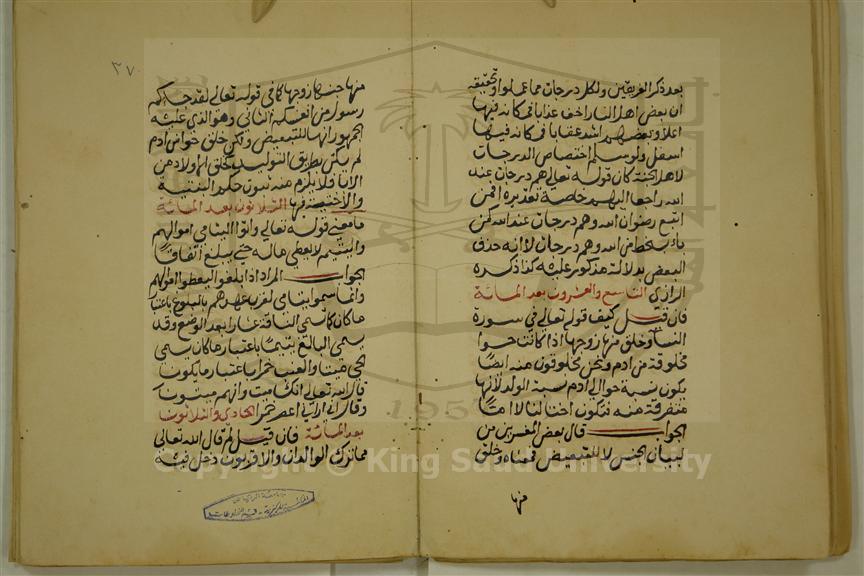 بعد ذكر الفريقين ولكل درجات مما عملوا وتحقيقه
ان بعض اهل النار اخف عذابا فمكانه فيها
اعلا وبعضهم اشد عقابا فمكانه فيها
اسفل ولو سلم اختصاص الدرجات
لاهل الجنة كان قوله تعالى هم درجات عند
الله راجعا اليهم خاصة تقديره افمن
اتبع رضوان الله وهم درجات عند الله كمن
باء بسخط من الله وهم دركات لا انه حذف
البعض بدلالة مذكور عليه كذا ذكره
الرازي التاسع والعشرون بعد المائة
فان قيل كيف قوله تعالى في سورة
النسا وخلق منها زوجها اذا كانت حوا
مخلوقة من ادم ونحن مخلوقون منه ايضا
يكون نسبة حوا الى ادم نسبة الولد لانها
متفرقة منه فتكون اختا لنا لا امنا
الجواب قال بعض المفسرين من
لبيان الجنس لا للتبعيض فمعناه وخلق
منها
٣٧
منها جنسها زوجها كما في قوله تعالى لقد جاءكم
رسول من انفسكم الثاني وهو الذي عليه
الجمهور انها للتبعيض ولكن خلق حوا من ادم
لم يكن بطريق التوليد كخلق الاولاد من
الابا فلا يلزم منه ثبوت حكم البنتية
والاختية فيها الثلاثون بعد المائة
ما معنى قوله تعالى واتوا اليتامى اموالهم
واليتيم لا يعطى ماله حتى يبلغ اتفاقا
الجواب المراد اذا بلغوا اليعطوا اموالهم
وانما سموا يتامى لقرب عهدهم بالبلوغ باعتبار
ما كان كما تسمى الناقة عشارا بعد الوضع وقد
يسمى البالغ يتيما باعتبار ما كان يسمى
الحي ميتا والعنب خمرا باعتبار ما يكون
قال الله تعالى انك ميت وانهم ميتون
وقال اني اراني اعصر خمرا الحادي والثلاثون
بعد المائة فان قيل لم قال الله تعالى
مما ترك الوالدان والاقربون دخل فيه
1957
Copyright © King Saud University